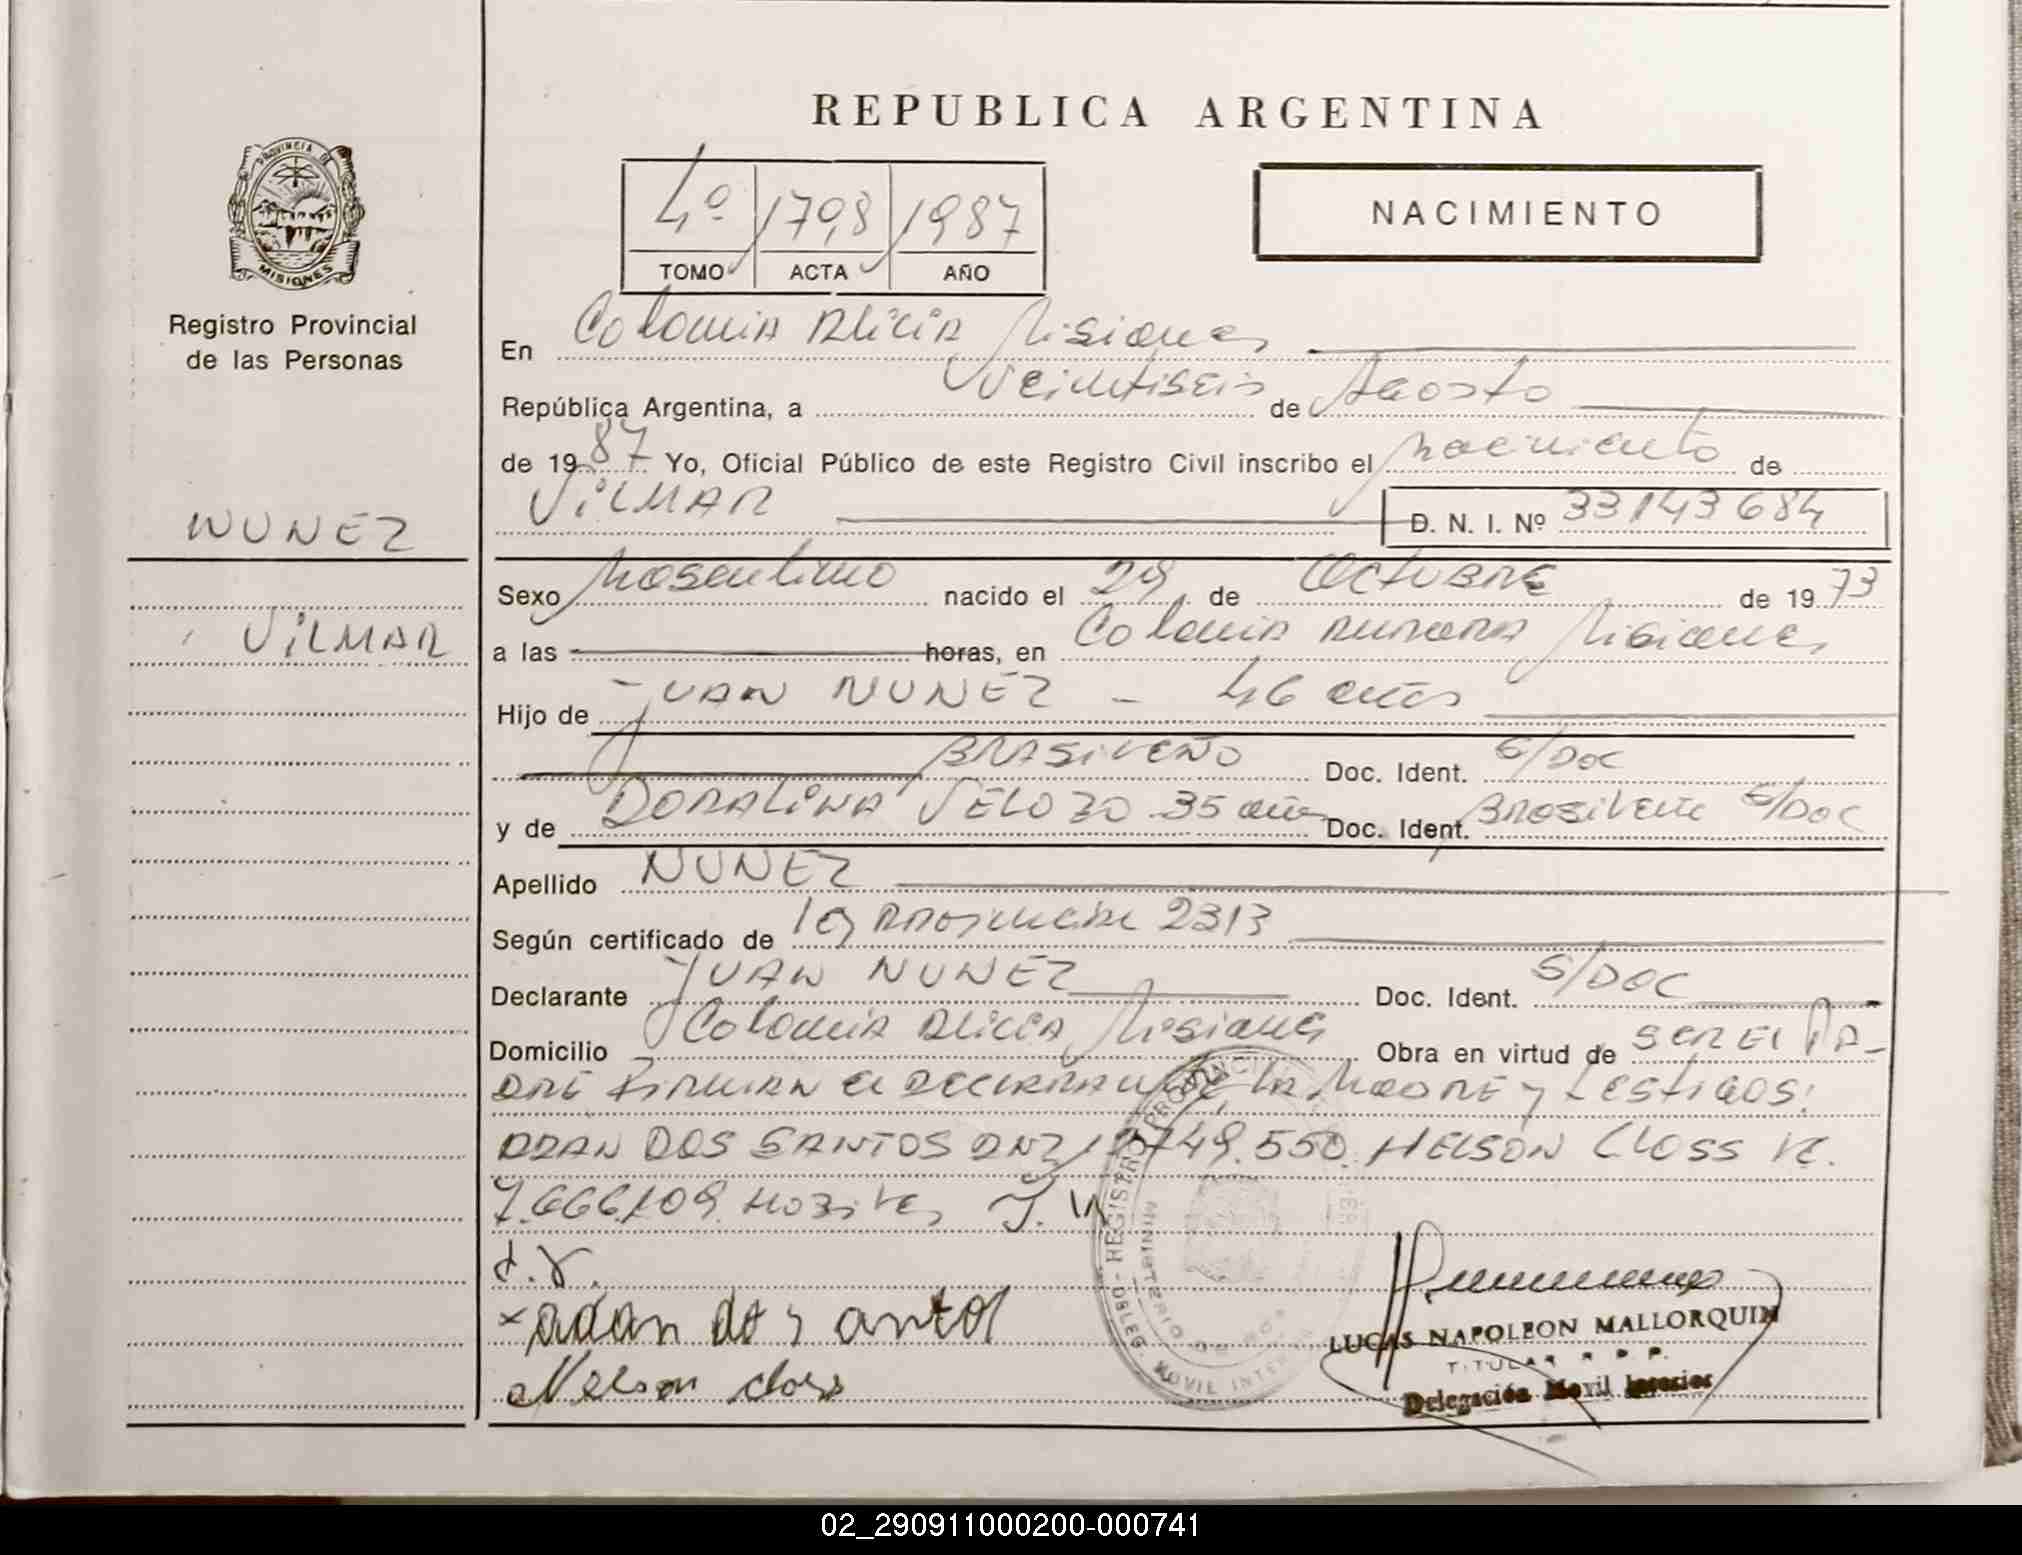 REPUBLICA ARGENTINA
PROVINCIA DE
MISIONES
Registro Provincial
de las Personas
4º 1798 1987
TOMO ACTA AÑO
NACIMIENTO
En Colonia Alicia Misiones
República Argentina, a Veintiseis de Agosto
de 1987 Yo, Oficial Público de este Registro Civil inscribo el Nacimiento de
VILMAR D. N. I. Nº 33143684
NUNEZ
VILMAR
Sexo Masculino nacido el 29 de Octubre de 1973
a las horas, en Colonia Aurora Misiones
Hijo de JUAN NUNEZ - 46 años
BRASILEÑO Doc. Ident. S/DOC
y de DORALINA VELOZO 35 años Doc. Ident. Brasileña S/DOC
Apellido NUNEZ
Según certificado de ley Provincial 2313
Declarante JUAN NUNEZ Doc. Ident. S/DOC
Domicilio Colonia Alicia Misiones Obra en virtud de SER EL PA-
DRE FIRMAN el DECLARANTE, LA MADRE y TESTIGOS:
ADAN DOS SANTOS DNI 749.550. NELSON CLOSS
7.666.109
J. N
d. v.
x adan do s antos
Nelson closs
LUCAS NAPOLEON MALLORQUIN
TITULAR R. P. P.
Delegación Movil Interior
02_290911000200-000741